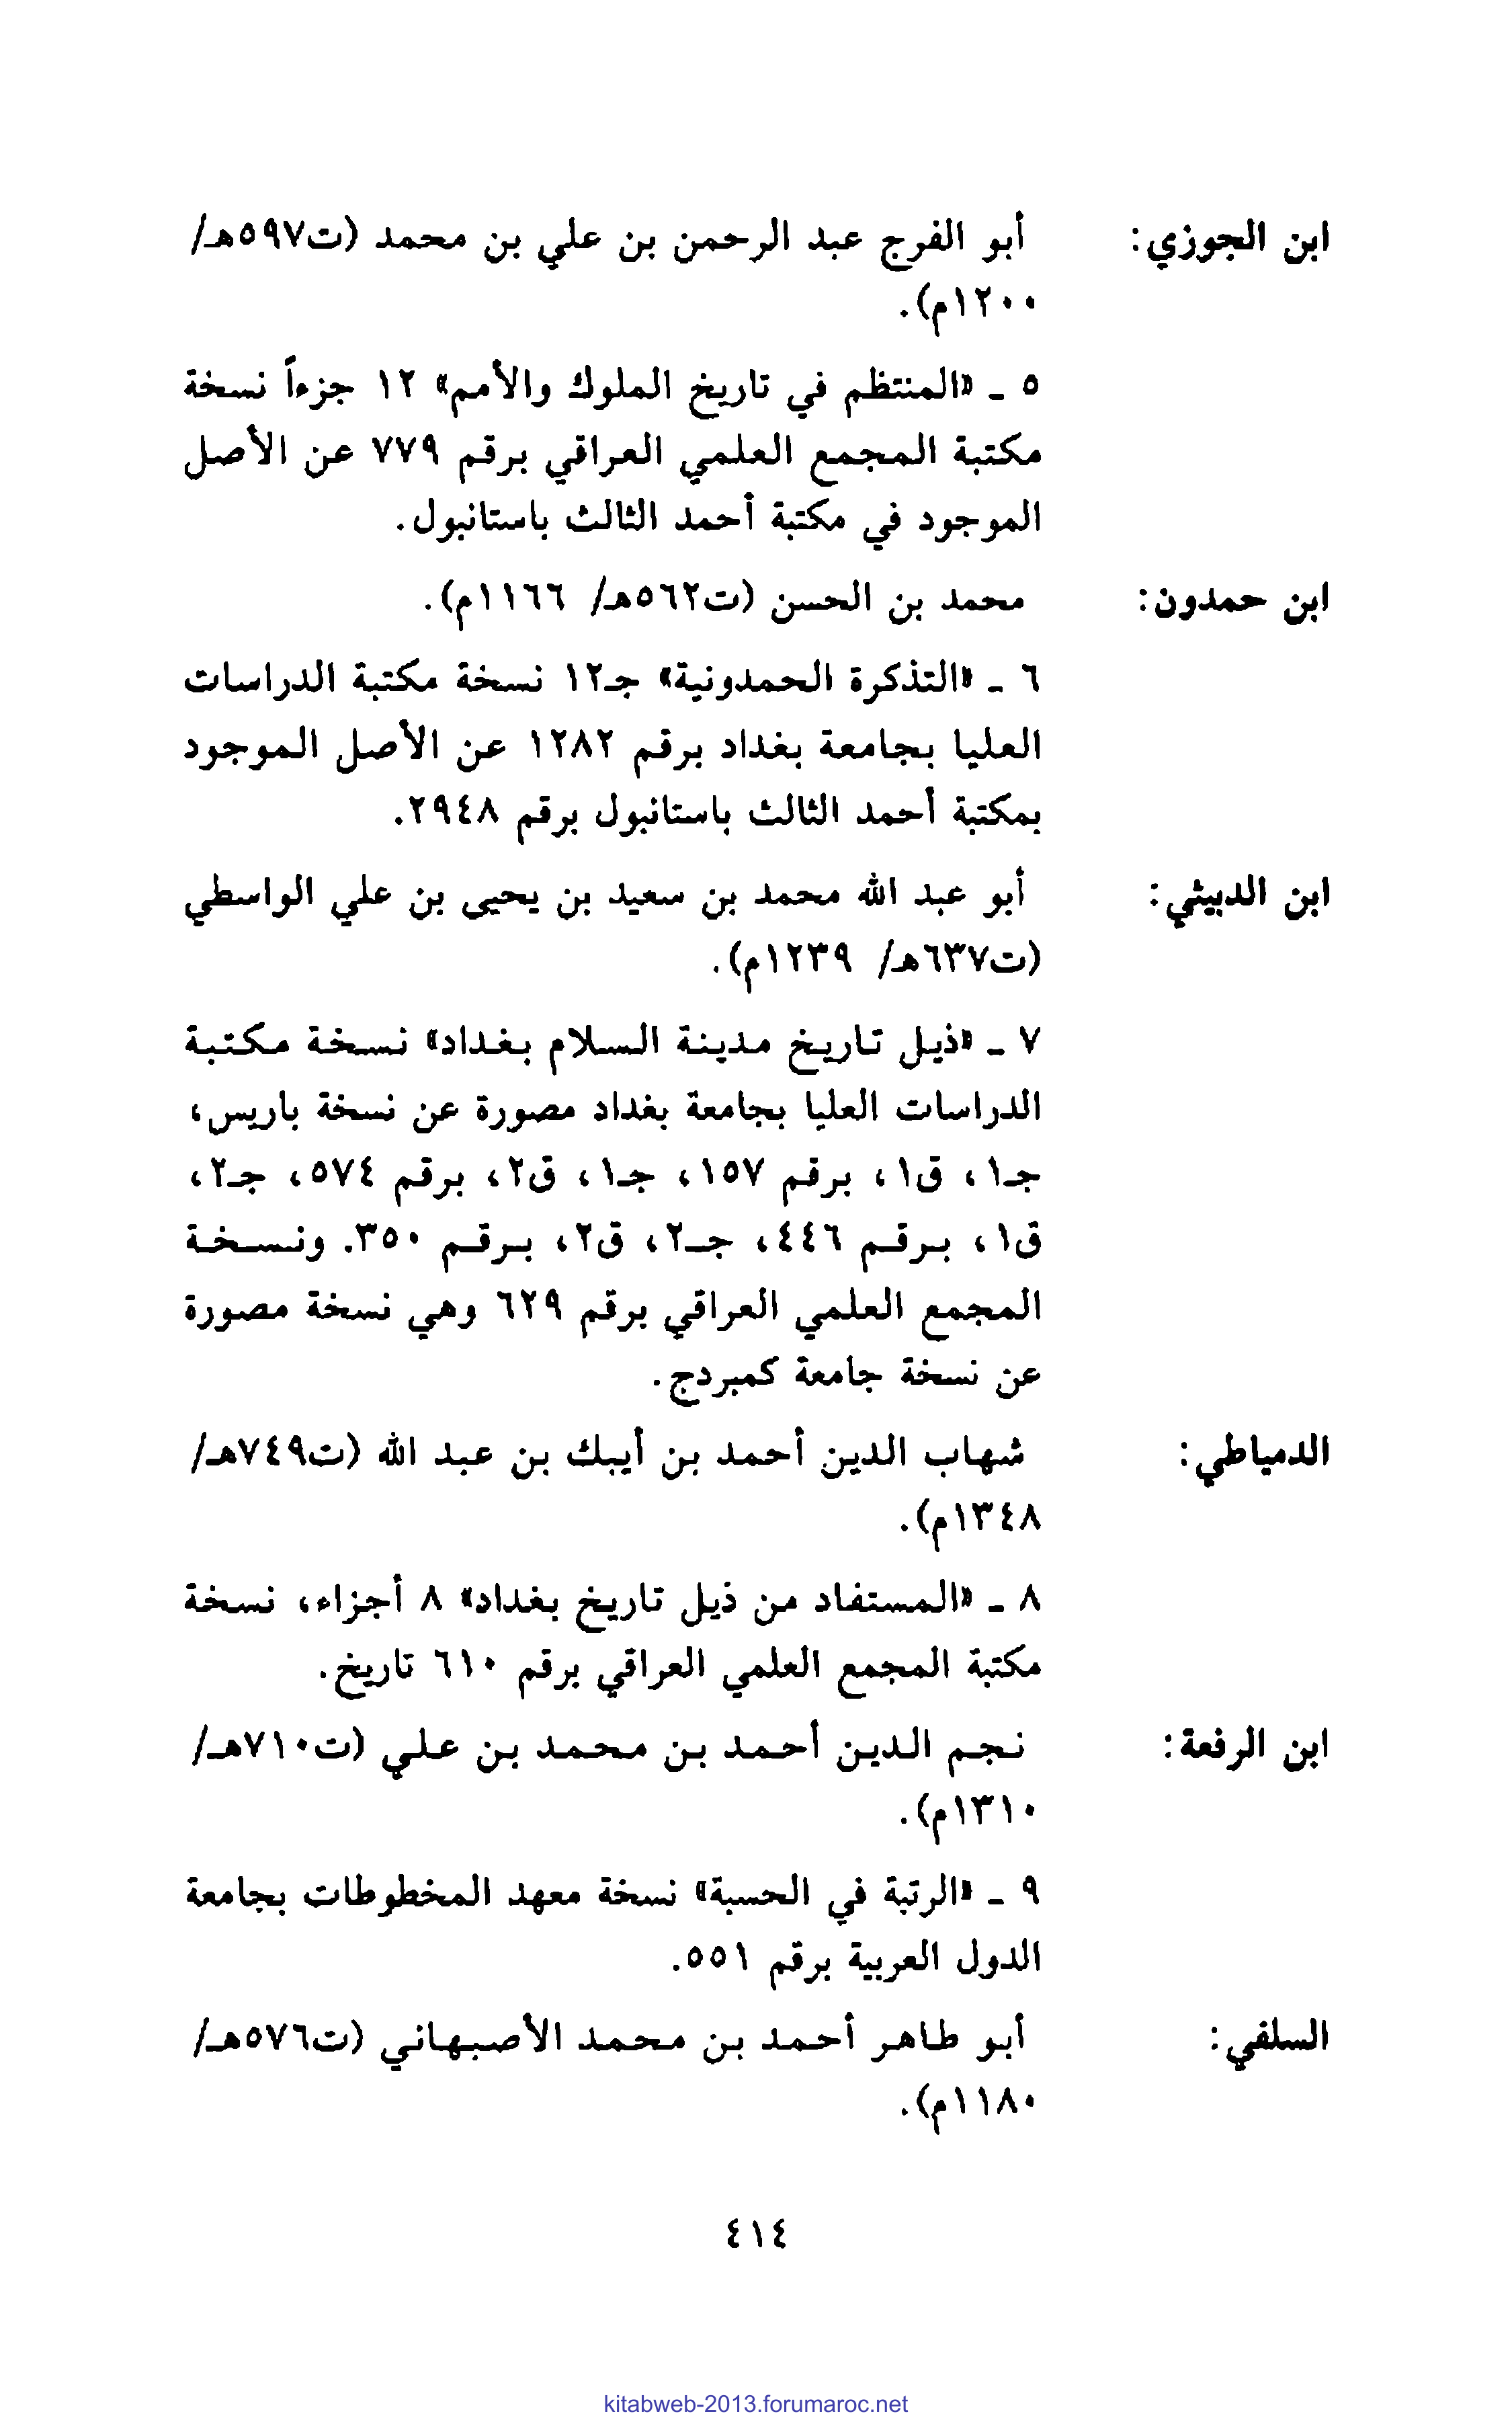 ابن الجوزي: أبو الفرج عبد الرحمن بن علي بن محمد (ت٥٩٧هـ/
١٢٠٠م).
٥ ـ «المنتظم في تاريخ الملوك والأمم» ١٢ جزءاً نسخة
مكتبة المجمع العلمي العراقي برقم ٧٧٩ عن الأصل
الموجود في مكتبة أحمد الثالث باستانبول.
ابن حمدون: محمد بن الحسن (ت٥٦٢هـ/ ١١٦٦م).
٦ ـ «التذكرة الحمدونية» جـ١٢ نسخة مكتبة الدراسات
العليا بجامعة بغداد برقم ١٢٨٢ عن الأصل الموجود
بمكتبة أحمد الثالث باستانبول برقم ٢٩٤٨.
ابن الدبيثي: أبو عبد الله محمد بن سعيد بن يحيى بن علي الواسطي
(ت٦٣٧هـ/ ١٢٣٩م).
٧ ـ «ذيل تاريخ مدينة السلام بغداد» نسخة مكتبة
الدراسات العليا بجامعة بغداد مصورة عن نسخة باريس،
جـ١، ق١، برقم ١٥٧، جـ١، ق٢، برقم ٥٧٤، جـ٢،
ق١، برقم ٤٤٦، جـ٢، ق٢، برقم ٣٥٠. ونسخة
المجمع العلمي العراقي برقم ٦٢٩ وهي نسخة مصورة
عن نسخة جامعة كمبردج.
الدمياطي: شهاب الدين أحمد بن أيبك بن عبد الله (ت٧٤٩هـ/
١٣٤٨م).
٨ ـ «المستفاد من ذيل تاريخ بغداد» ٨ أجزاء، نسخة
مكتبة المجمع العلمي العراقي برقم ٦١٠ تاريخ.
ابن الرفعة: نجم الدين أحمد بن محمد بن علي (ت٧١٠هـ/
١٣١٠م).
٩ ـ «الرتبة في الحسبة» نسخة معهد المخطوطات بجامعة
الدول العربية برقم ٥٥١.
السلفي: أبو طاهر أحمد بن محمد الأصبهاني (ت٥٧٦هـ/
١١٨٠م).
٤١٤
kitabweb-2013.forumaroc.net